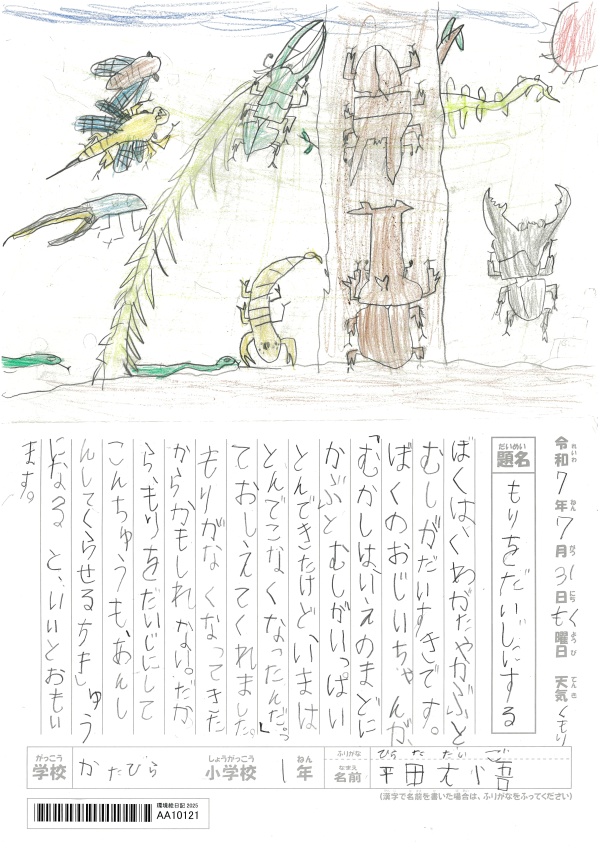 令和7年7月31日もく曜日 天気くもり
れいわ ねん がつ にち ようび てんき
だいめい
題名
もりをだいじにする
ぼくは、くわがたやかぶと
むしがだいすきです。
ぼくのおじいちゃんが
「むかしは、いえのまどに
かぶとむしがいっぱい
とんできたけど、いまは
とんでこなくなったんだ。」っ
ておしえてくれました。
もりがなくなってきた
からかもしれない。だか
ら、もりをだいじにして
こんちゅうも、あんし
んしてくらせるちきゅう
になると、いいとおもい
ます。
がっこう
学校
かたびら
しょうがっこう
小学校
1
ねん
年
ふりがな
ひらた だいご
なまえ
名前
平田大小吾
(漢字で名前を書いた場合は、ふりがなをふってください)
環境絵日記 2025
AA10121